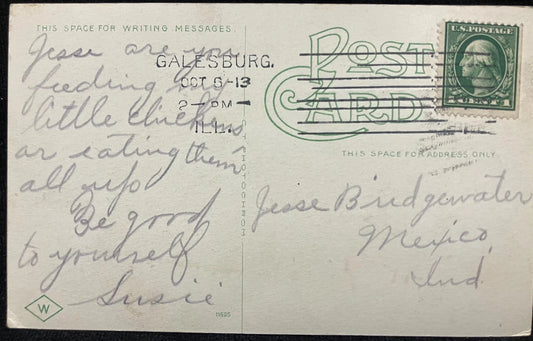 THIS SPACE FOR WRITING MESSAGES.
Jesse are you
feeding
little
or eating them
all up
Be good
to yourself
Susie
W
GALESBURG.
OCT 6-13
2-PM
ILL.
POST
CARD
U.S. POSTAGE
1 CENT 1
THIS SPACE FOR ADDRESS ONLY
Jesse Bridgewater
Mexico,
Ind.